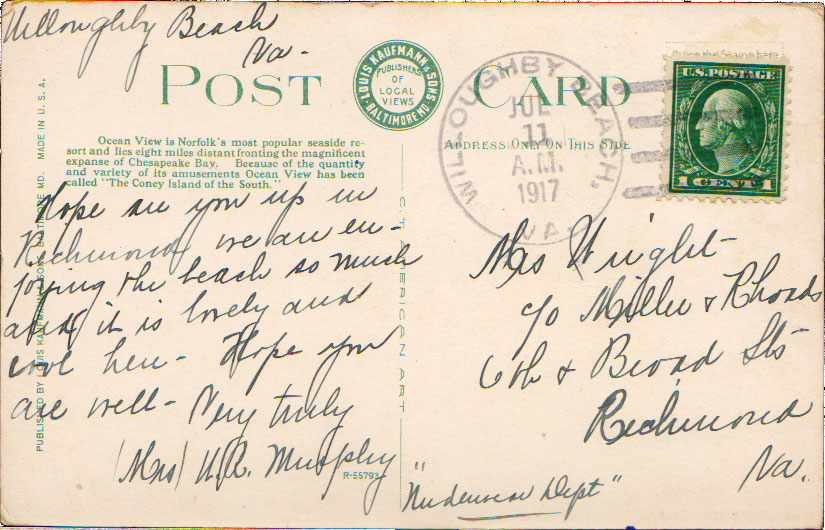 Willoughby Beach
Va-
POST CARD
LOUIS KAUFMANN & SONS
BALTIMORE MD.
PUBLISHERS
OF
LOCAL
VIEWS
ADDRESS ONLY ON THIS SIDE
Ocean View is Norfolk's most popular seaside re-
sort and lies eight miles distant fronting the magnificent
expanse of Chesapeake Bay. Because of the quantity
and variety of its amusements Ocean View has been
called "The Coney Island of the South."
Hope
you up in
Richmond we are en-
joying the beach so much
it is lovely and
cool here- Hope you
are well- Very truly
(Mrs) W.R. Murphy
R-55793
PUBLISHED BY LOUIS KAUFMANN & SONS, BALTIMORE MD. MADE IN U. S. A.
C. T. AMERICAN ART
WILLOUGHBY BEACH,
VA.
JUL
11
A.M.
1917
U.S. POSTAGE
1 CENT 1
Wright
c/o Miller & Rhoads
6th & Broad Sts
Richmond
Va.
Dept"